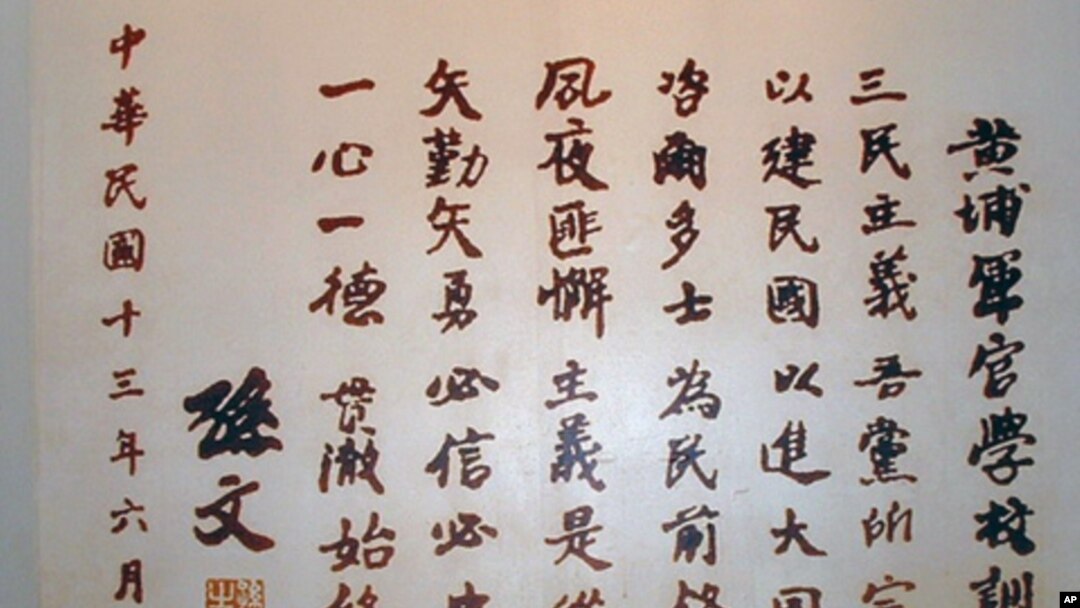 黃埔軍官學校訓
三民主義 吾黨所
以建民國 以進大
咨爾多士 為民前
夙夜匪懈 主義是
矢勤矢勇 必信必
一心一德 貫澈始
孫文
中華民國十三年六月
AP